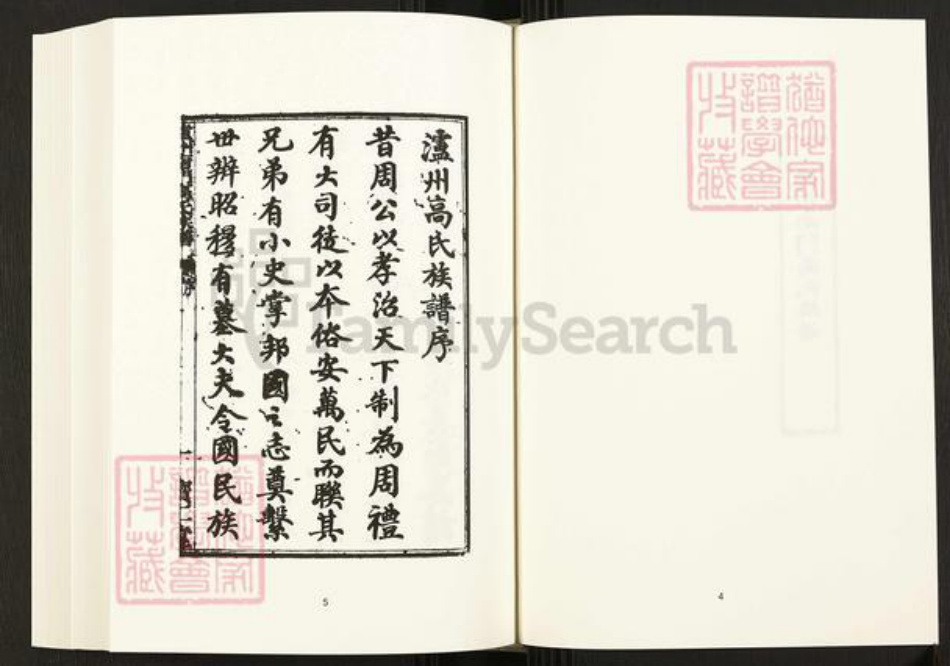 瀘州高氏族譜序
昔周公以孝治天下制為周禮
有大司徒以本俗安萬民而聯其
兄弟有小史掌邦國之志奠繫
世辨昭穆有墓大夫令國民族
5
4
譜學會
收藏
FamilySearch